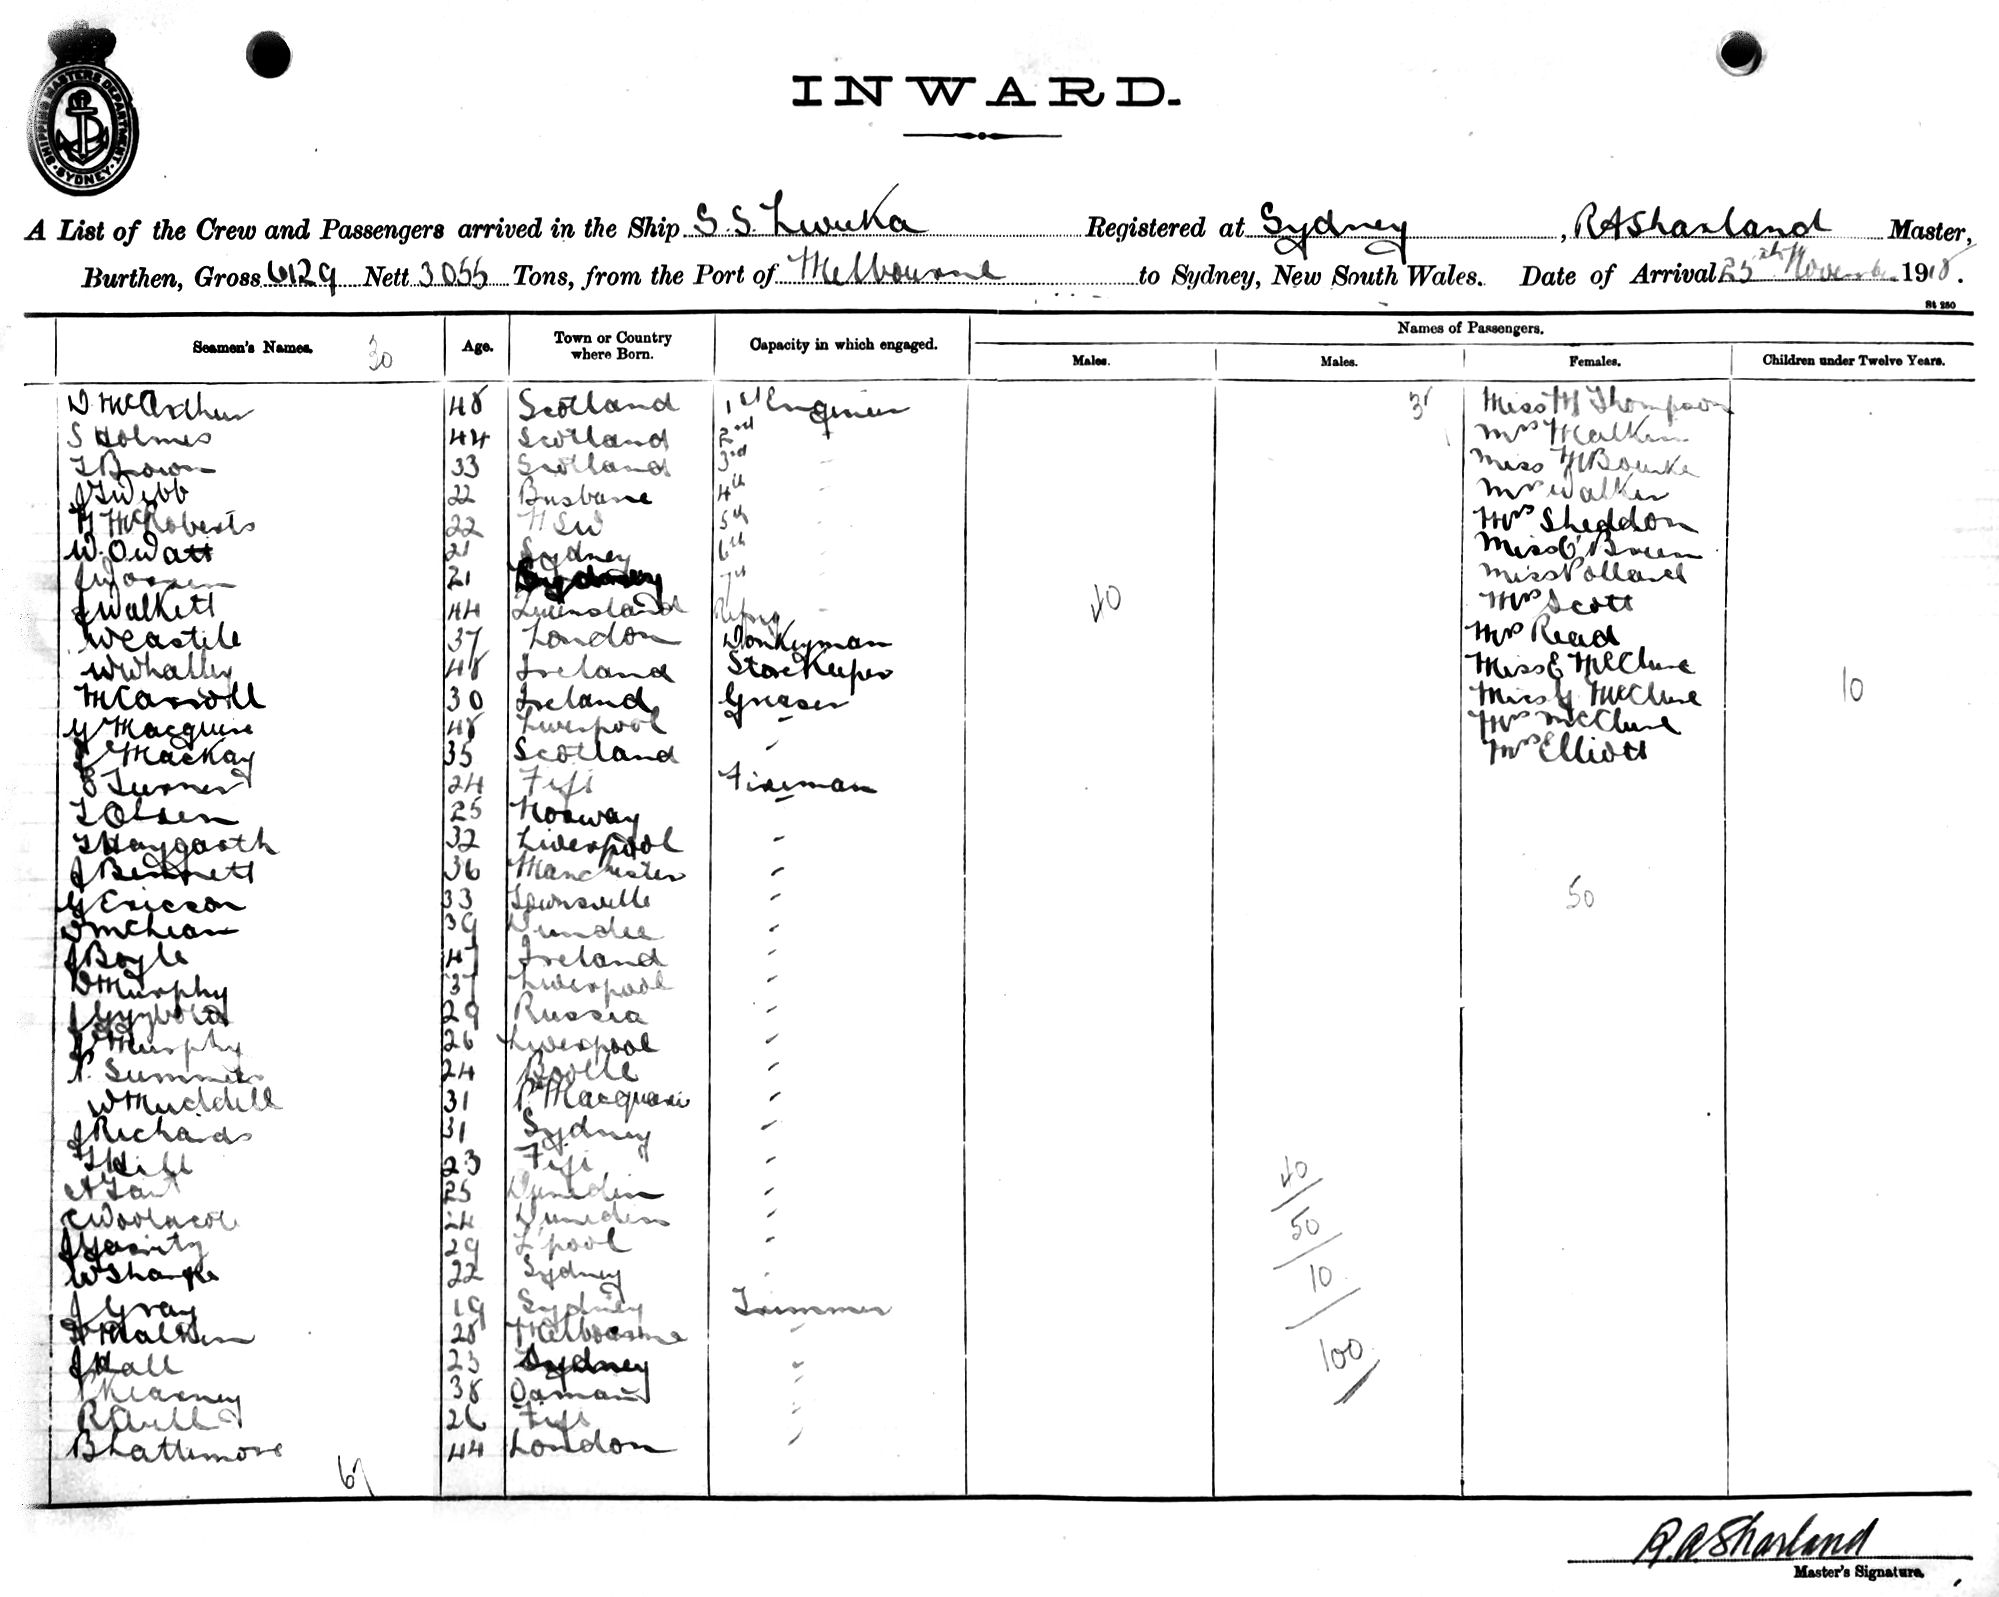 SHIPPING MASTERS DEPARTMENT
SYDNEY
INWARD.
A List of the Crew and Passengers arrived in the Ship S.S. Levuka Registered at Sydney , R A Sharland Master,
Burthen, Gross 6129 Nett 3055 Tons, from the Port of Melbourne to Sydney, New South Wales. Date of Arrival 25th November 1918.
St 250
Seamen's Names. 30 Age. Town or Country where Born. Capacity in which engaged. Names of Passengers.
Males. Males. Females. Children under Twelve Years.
D McArthur 48 Scotland 1st Engineer 37 Miss M Thompson
S Holmes 44 Scotland 2nd Mrs Malkin
T Brown 33 Scotland 3rd Miss M Bourke
J Webb 22 Brisbane 4th Mrs Walker
H McRoberts 22 N S W 5th Mrs Sheddon
W. O Watt 21 Sydney 6th Miss O'Brien
21 Sydney 7th Miss Pollard
J Walkett 44 Queensland Refrig 40 Mrs Scott
W Castle 37 London Donkeyman Mrs Read
W Whalley 48 Ireland Storekeeper Miss E McClure
M Carroll 30 Ireland Greaser Miss G McClure 10
G Macquire 48 Liverpool Mrs McClure
J Mackay 35 Scotland " Mrs Elliott
E Turner 24 Fiji Fireman
T Olsen 25 Norway
T Haygarth 32 Liverpool "
J Bennett 36 Manchester "
G Ericson 33 Townsville " 50
D McLean 39 Dundee "
J Boyle 47 Ireland "
D Murphy 37 Liverpool "
J 29 Russia "
J Murphy 26 Liverpool "
P. Summers 24 Bootle "
W Muddell 31 Pt Macquarie "
J Richards 31 Sydney "
T Hill 23 Fiji " 40
A Tait 25 Dunedin "
C Woolacott 24 Dunedin " 50
J Garrity 29 L'pool "
W Sharpe 22 Sydney " 10
J Gray 19 Sydney Trimmer
H Malthen 28 Melbourne "
J Hall 23 Sydney " 100
Kearney 38 Oamaru "
R 26 Fiji "
B Lattimore 44 London "
67
R. A. Sharland
Master's Signature.